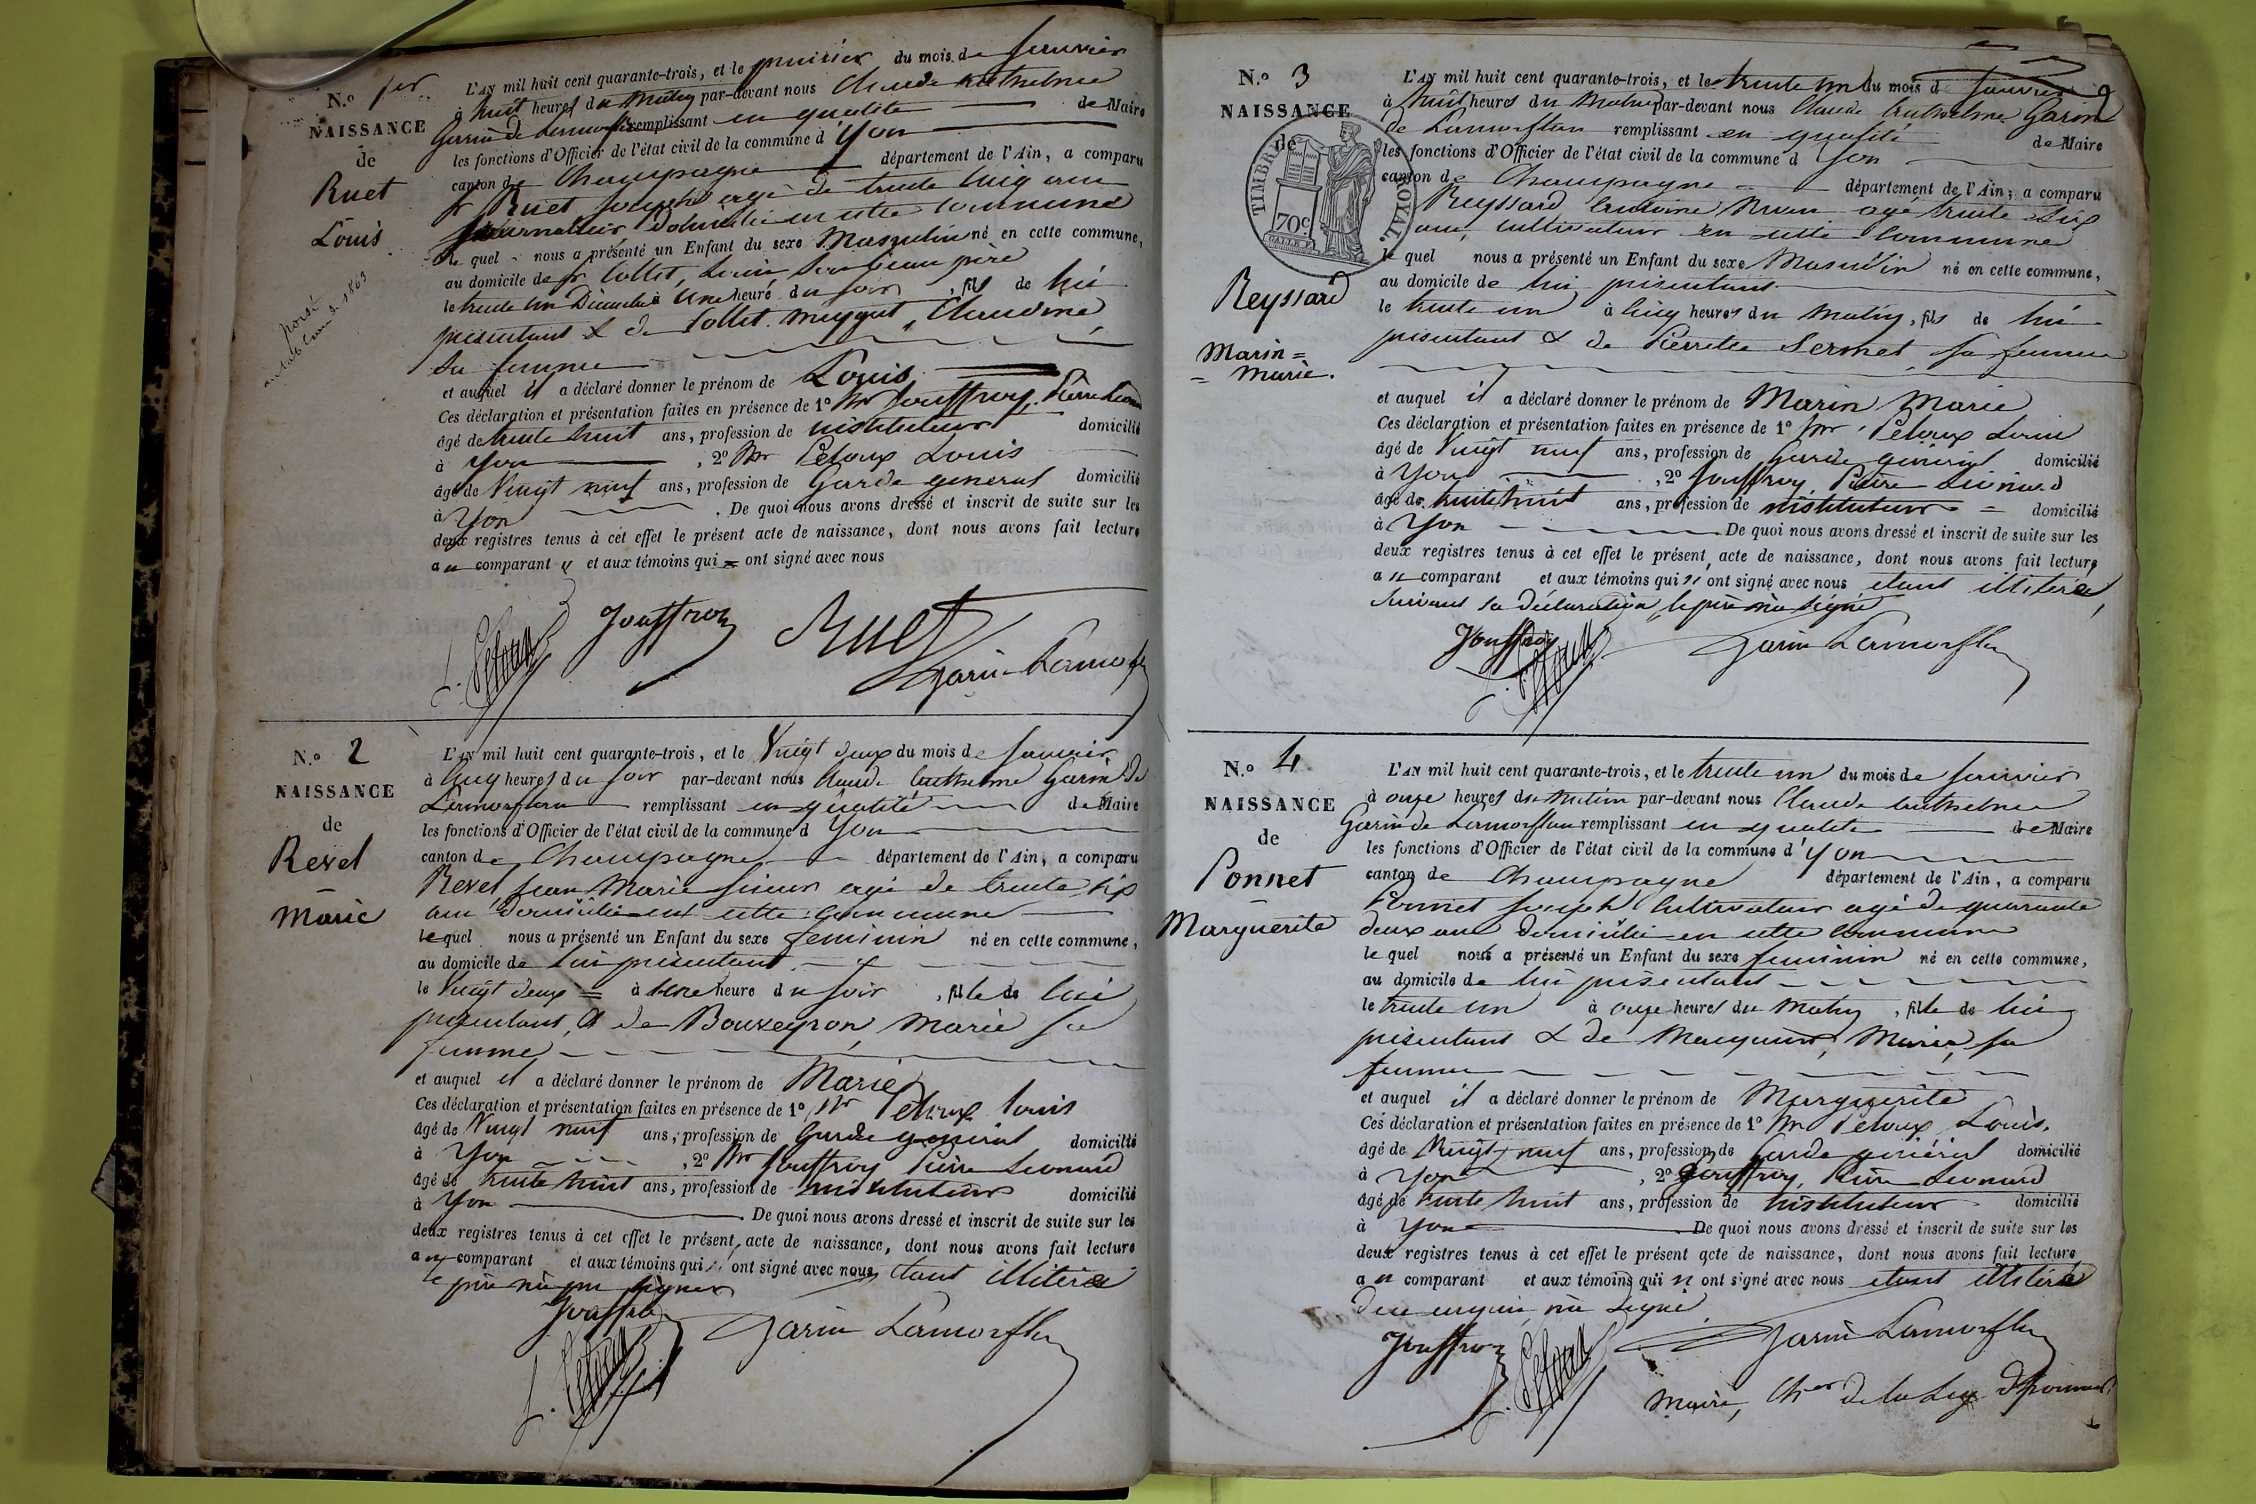 N.° 1er
NAISSANCE
de
Ruet
Louis
porté
au tableau de 1863
L'AN mil huit cent quarante-trois, et le premier du mois de Janvier
à huit heures du matin par-devant nous Claude Anthelme
Garin de Lamorflan remplissant en qualité de Maire
les fonctions d'Officier de l'état civil de la commune d'Yon
canton de Champagne département de l'Ain, a comparu
Sr Ruet Joseph agé de trente cinq ans
journallier, Domicilié en cette commune
le quel nous a présenté un Enfant du sexe Masculin né en cette commune,
au domicile de Sr Collet, Louis son beau père
le trente un Décembre à une heure du soir, fils de lui
présentant & de Collet Claudine
sa femme
et auquel il a déclaré donner le prénom de Louis
Ces déclaration et présentation faites en présence de 1° Mr Jouffroy, Pierre Léonard
âgé de trente huit ans, profession de instituteur domicilié
à Yon, 2° Mr Peloux Louis
âgé de Vingt neuf ans, profession de Garde général domicilié
à Yon. De quoi nous avons dressé et inscrit de suite sur les
deux registres tenus à cet effet le présent acte de naissance, dont nous avons fait lecture
au comparant et aux témoins qui ont signé avec nous
L. Peloux Jouffroy Ruet
Garin Lamorflan
N.° 2
NAISSANCE
de
Revel
Marie
L'AN mil huit cent quarante-trois, et le Vingt deux du mois de Janvier
à cinq heures du soir par-devant nous Claude Anthelme Garin de
Lamorflan remplissant en qualité de Maire
les fonctions d'Officier de l'état civil de la commune d Yon
canton de Champagne département de l'Ain, a comparu
Revel, Jean Marie agé de trente six
ans domicilié en cette commune
lequel nous a présenté un Enfant du sexe féminin né en cette commune,
au domicile de lui présentant
le Vingt deux à une heure du soir, fille de lui
présentant, & de Bouveyron, Marie sa
femme
et auquel il a déclaré donner le prénom de Marie
Ces déclaration et présentation faites en présence de 1° Mr Peloux Louis
âgé de Vingt neuf ans, profession de Garde général domicilié
à Yon, 2° Mr Jouffroy Pierre Léonard
âgé de trente huit ans, profession de instituteur domicilié
à Yon. De quoi nous avons dressé et inscrit de suite sur les
deux registres tenus à cet effet le présent acte de naissance, dont nous avons fait lecture
au comparant et aux témoins qui ont signé avec nous étant illitéré
le père n'a pu signer
Jouffroy Garin Lamorflan
L. Peloux
N.° 3
NAISSANCE
de
TIMBRE ROYAL.
70c
Reyssard
Marin=
=Marie.
L'AN mil huit cent quarante-trois, et le trente un du mois d Janvier
à huit heures du Matin par-devant nous Claude Anthelme Garin
de Lamorflan remplissant en qualité de Maire
les fonctions d'Officier de l'état civil de la commune d Yon
canton de Champagne département de l'Ain, a comparu
Reyssard Antoine Marin agé trente six
ans, cultivateur en cette commune
le quel nous a présenté un Enfant du sexe Masculin né en cette commune,
au domicile de lui présentant
le trente un à cinq heures du matin, fils de lui
présentant & de Pierrette Sermet sa femme
et auquel il a déclaré donner le prénom de Marin Marie
Ces déclaration et présentation faites en présence de 1° Mr Peloux Louis
âgé de Vingt neuf ans, profession de Garde général domicilié
à Yon, 2° Jouffroy, Pierre Léonard
âgé de trente huit ans, profession de instituteur domicilié
à Yon De quoi nous avons dressé et inscrit de suite sur les
deux registres tenus à cet effet le présent acte de naissance, dont nous avons fait lecture
au comparant et aux témoins qui ont signé avec nous étant illitéré,
suivant sa déclaration, le père n'a signé
Jouffroy Garin Lamorflan
L. Peloux
N.° 4
NAISSANCE
de
Ponnet
Marguerite
L'AN mil huit cent quarante-trois, et le trente un du mois de Janvier
à onze heures du Matin par-devant nous Claude Anthelme
Garin de Lamorflan remplissant en qualité de Maire
les fonctions d'Officier de l'état civil de la commune d'Yon
canton de Champagne département de l'Ain, a comparu
Ponnet Joseph Cultivateur agé de quarante
deux ans domicilié en cette commune
le quel nous a présenté un Enfant du sexe féminin né en cette commune,
au domicile de lui présentant
le trente un à onze heures du Matin, fille de lui
présentant & de Marie, sa
femme
et auquel il a déclaré donner le prénom de Marguerite
Ces déclaration et présentation faites en présence de 1° Mr Peloux Louis,
âgé de Vingt neuf ans, profession de Garde général domicilié
à Yon, 2° Jouffroy, Pierre Léonard
âgé de trente huit ans, profession de instituteur domicilié
à Yon De quoi nous avons dressé et inscrit de suite sur les
deux registres tenus à cet effet le présent acte de naissance, dont nous avons fait lecture
au comparant et aux témoins qui ont signé avec nous étant illitéré
n'a signé
Jouffroy L. Peloux Garin Lamorflan
Maire, Cher de la Leg. d'honneur